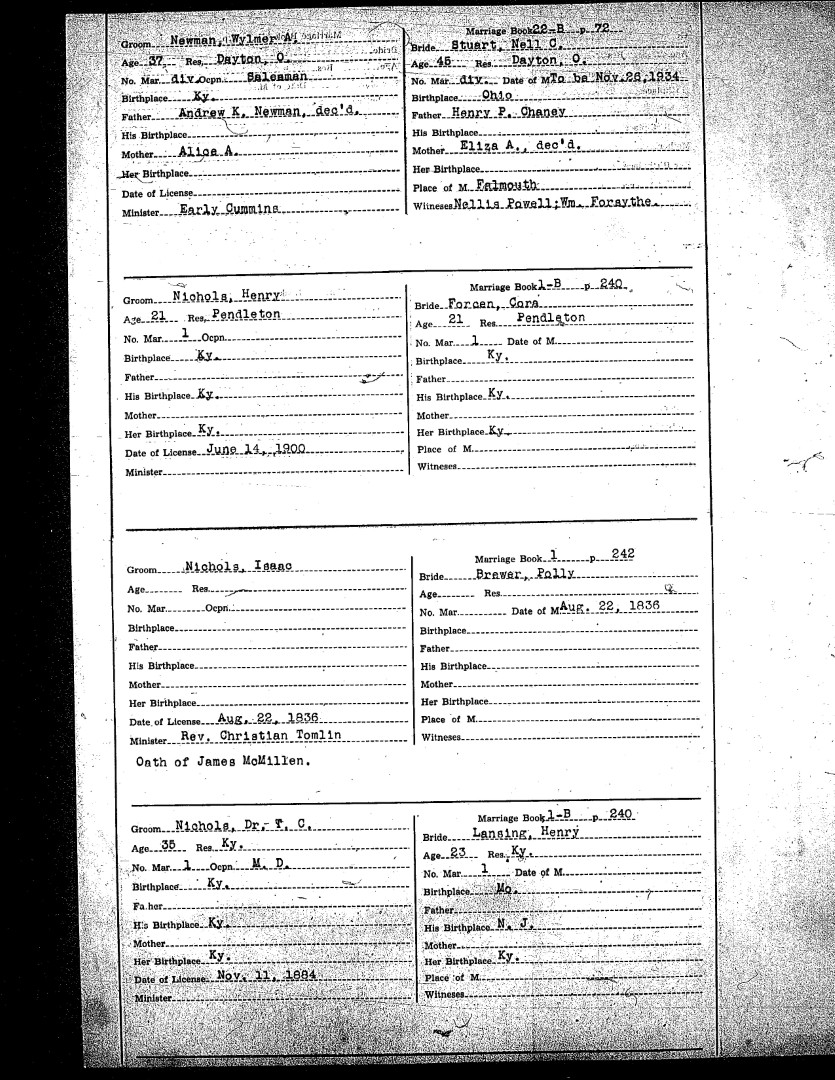 Marriage Book 22-B p. 72
Groom Newman, Wylmer A. Bride Stuart, Nell C.
Age 37 Res. Dayton, O. Age 45 Res. Dayton, O.
No. Mar. div. Ocpn. Salesman No. Mar. div. Date of M. To be Nov. 26, 1934
Birthplace Ky. Birthplace Ohio
Father Andrew K. Newman, dec'd. Father Henry P. Chaney
His Birthplace His Birthplace
Mother Alice A. Mother Eliza A., dec'd.
Her Birthplace Her Birthplace
Date of License Place of M. Falmouth
Minister Early Cummins Witneses Nellis Powell; Wm. Forsythe.
Marriage Book 1-B p. 240
Groom Nichols, Henry Bride Forcen, Cora
Age 21 Res. Pendleton Age 21 Res. Pendleton
No. Mar. 1 Ocpn. No. Mar. 1 Date of M.
Birthplace Ky. Birthplace Ky.
Father Father
His Birthplace Ky. His Birthplace Ky.
Mother Mother
Her Birthplace Ky. Her Birthplace Ky.
Date of License June 14, 1900 Place of M.
Minister Witneses
Marriage Book 1 p. 242
Groom Nichols, Isaac Bride Brewer, Polly
Age Res. Age Res.
No. Mar. Ocpn. No. Mar. Date of M. Aug. 22, 1836
Birthplace Birthplace
Father Father
His Birthplace His Birthplace
Mother Mother
Her Birthplace Her Birthplace
Date of License Aug. 22, 1836 Place of M.
Minister Rev. Christian Tomlin Witneses
Oath of James McMillen.
Marriage Book 1-B p. 240
Groom Nichols, Dr. T. C. Bride Lansing, Henry
Age 35 Res. Ky. Age 23 Res. Ky.
No. Mar. 1 Ocpn. M. D. No. Mar. 1 Date of M.
Birthplace Ky. Birthplace Mo.
Father Father
His Birthplace Ky. His Birthplace N. J.
Mother Mother
Her Birthplace Ky. Her Birthplace Ky.
Date of License Nov. 11, 1884 Place of M.
Minister Witneses